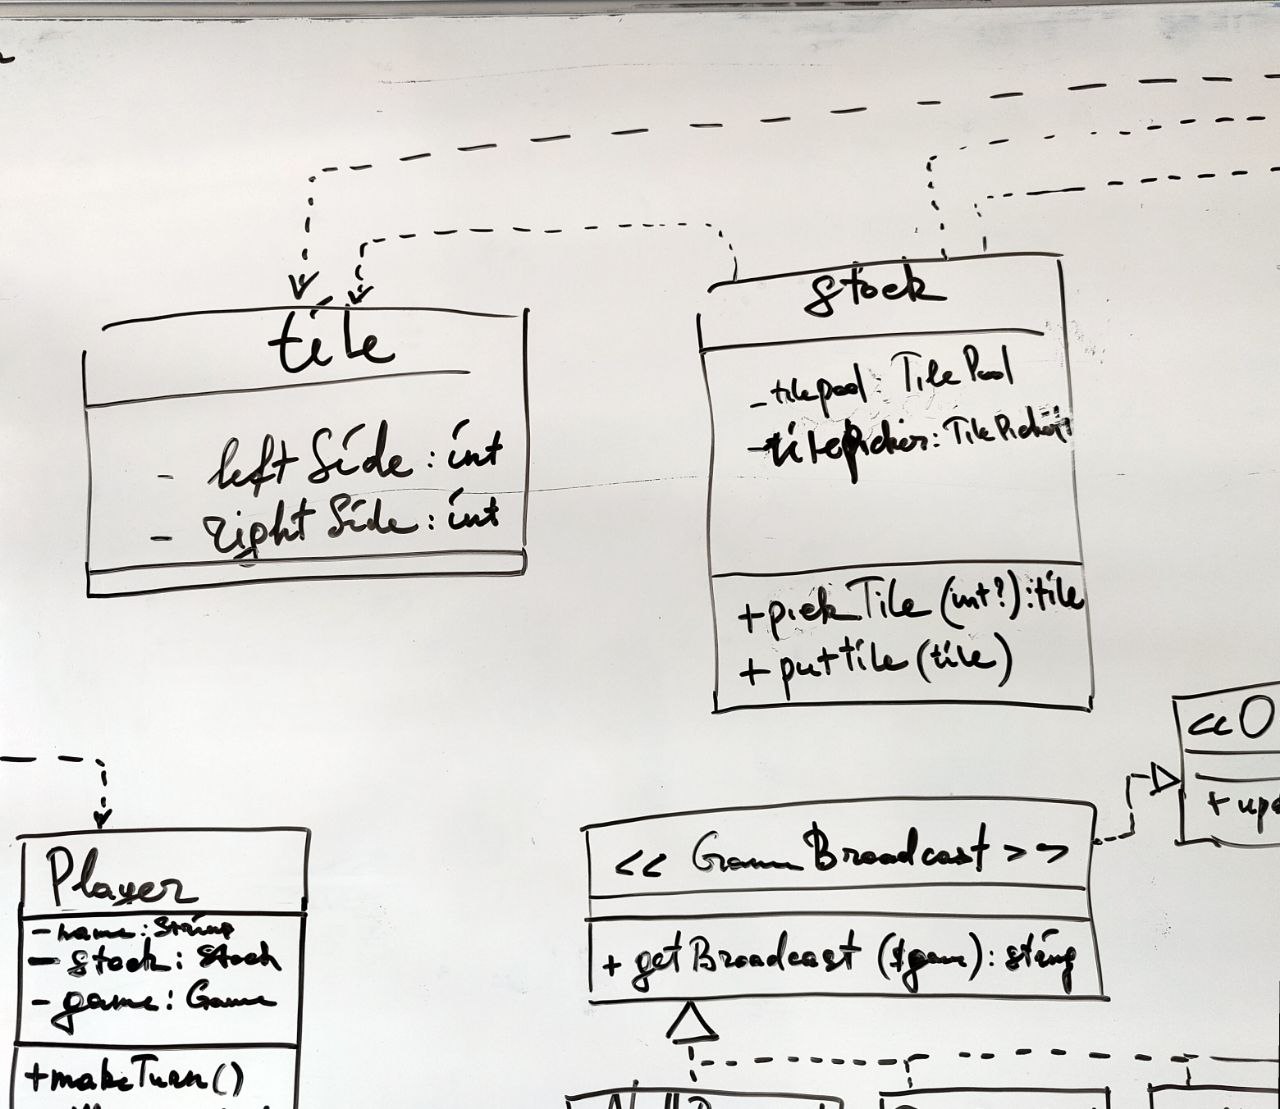 tile
- left Side : int
- right Side : int
stock
- tilepool : TilePool
- tilepicker : TilePicker
+ pickTile (int?) : tile
+ puttile (tile)
<< O
+ upd
Player
- name : String
- stock : Stock
- game : Game
+ makeTurn ()
<< GameBroadcast >>
+ getBroadcast ($game) : string